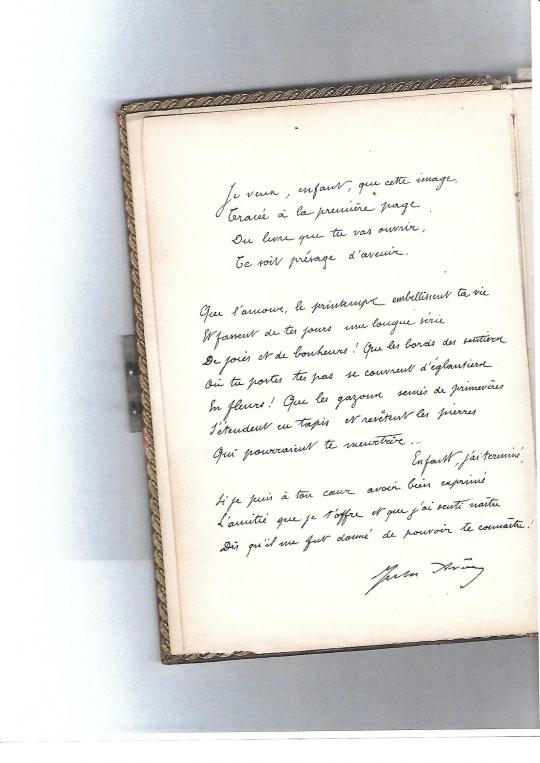 Je veux, enfant, que cette image,
Tracée à la première page
Du livre que tu vas ouvrir,
Te soit présage d'avenir.
Que l'amour, le printemps embellissent ta vie
Et fassent de tes jours une longue série
De joies et de bonheurs ! Que les bords des sentiers
Où tu portes tes pas se couvrent d'églantiers
En fleurs ! Que les gazons semés de primevères
S'étendent en tapis et revêtent les pierres
Qui pourraient te meurtrir...
Enfant, j'ai terminé,
Si je puis à ton cœur avoir bien exprimé
L'amitié que je t'offre et que j'ai senti naître
Dès qu'il me fut donné de pouvoir te connaître !
Jules